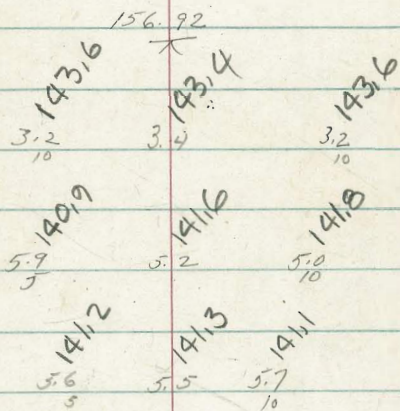 156.92
143.6 143.4 143.6
3.2 3.4 3.2
10 10
140.9 141.6 141.8
5.9 5.2 5.0
5 10
141.2 141.3 141.1
5.6 5.5 5.7
5 10